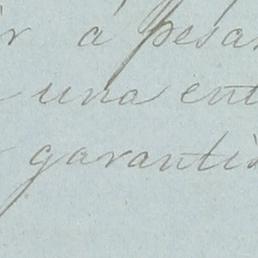 r á pesar
una ent
garantia